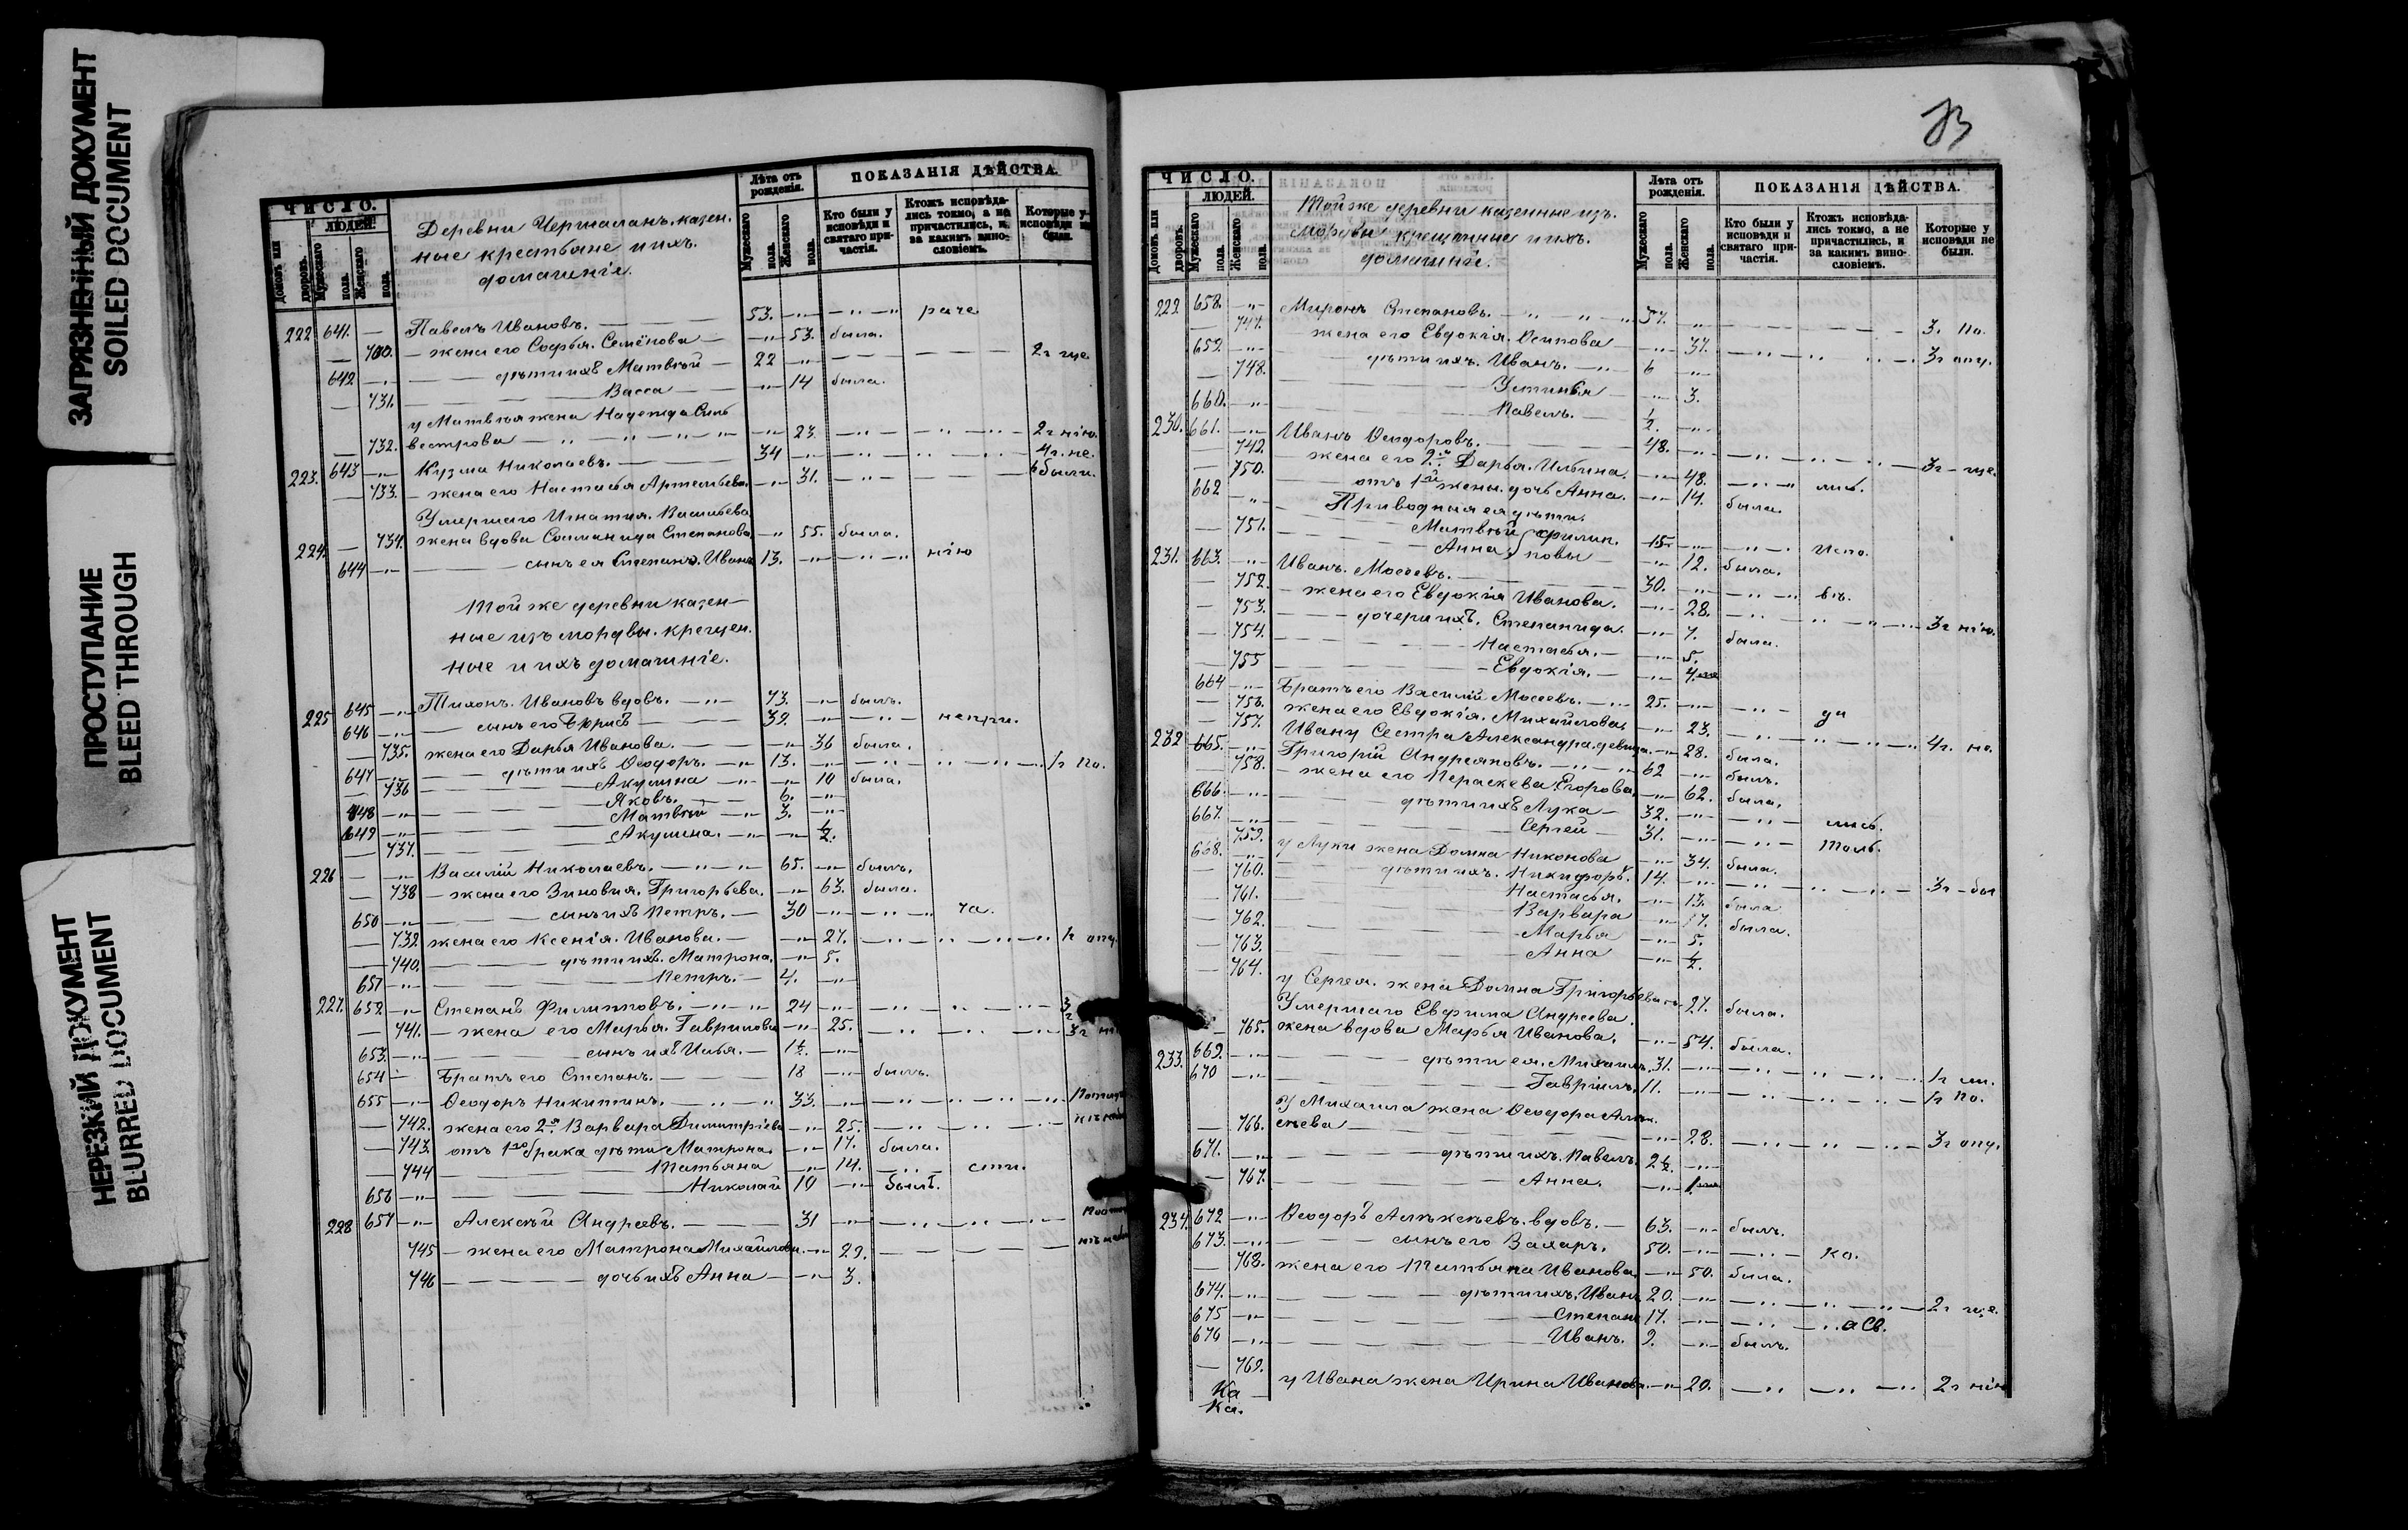 ЗАГРЯЗНЕННЫЙ ДОКУМЕНТ
SOILED DOCUMENT
ПРОСТУПАНИЕ
BLEED THROUGH
НЕРЕЗКИЙ ДОКУМЕНТ
BLURRED DOCUMENT
ЧИСЛО.
ЛЮДЕЙ.
Домовъ или дворовъ.
Мужескаго пола.
Женскаго пола.
Деревни Чермаланъ. казен-
ные крестьяне и ихъ.
домашніе.
Лѣта отъ рожденія.
Мужескаго пола.
Женскаго пола.
ПОКАЗАНІЯ ДѢЙСТВА.
Кто были у исповѣди и святаго при-частія.
Ктожъ исповѣда-лись токмо, а не причастились, и за какимъ вино-словіемъ.
Которые у исповѣди не были.
222 641. — Павелъ Ивановъ. 53. раче
— жена его Софья. Семёнова 53. была.
642 дѣти ихъ Матвѣй 22 2г ще.
731. Васса 14 была.
у Матвѣя жена Надежда Силь
732. вестрова 23. 2г нію.
223. 643 Кузма Николаевъ. 34 4г. не.
733. жена его Настасья Артемьева. 31. были.
Умершаго Игнатия. Васильева
224. 734. жена вдова Соломанида Степанова 55. была.
644 сынъ ея Степанъ. Иванъ 13. нію
Той же деревни казен-
ные изъ мордвы. крещен.
ные и ихъ домашніе.
225 645 Тихонъ. Ивановъ вдовъ. 73. былъ.
646 сынъ его Борисъ 39. непри.
735. жена его Дарья Иванова. 36 была.
647 дѣти ихъ Ѳеодоръ. 13. 1г По.
736 Акулина 10 была.
648 Яковъ. 6.
649 Матвѣй 3.
737. Акулина. 1/2.
226 Василій Николаевъ. 65. былъ.
738 жена его Зиновия. Григорьева. 63. была.
650 сынъ ихъ Петръ. 30 ча.
739 жена его Ксенія. Иванова. 27. 1г опу.
740. дѣти ихъ. Матрона. 5.
651 Петръ. 4.
227. 652 Степанъ Филипповъ. 24
741. жена его Марья. Гаврилова 25. 3г
653. сынъ ихъ Илья. 1 1/2.
654 Братъ его Степанъ. 18 былъ.
655 Ѳеодоръ Никитинъ. 33.
742. жена его 2я. Варвара Димитріева 25.
743. отъ 1го брака дѣти Матрона. 17. была.
744 Татьяна 14. сти.
656 Николай 10 былъ.
228 657 Алексѣй Андреевъ. 31
745 жена его Матрона Михайлова. 29.
746 дочь ихъ Анна 3.
73
ЧИСЛО.
ЛЮДЕЙ.
Домовъ или дворовъ.
Мужескаго пола.
Женскаго пола.
Той же деревни казенные изъ.
мордвы крещенные и ихъ.
домашніе.
Лѣта отъ рожденія.
Мужескаго пола.
Женскаго пола.
ПОКАЗАНІЯ ДѢЙСТВА.
Кто были у исповѣди и святаго при-частія.
Ктожъ исповѣда-лись токмо, а не причастились, и за какимъ вино-словіемъ.
Которые у исповѣди не были.
229. 658. Миронъ Степановъ. 37. 3г По.
747. жена его Евдокія. Осипова 37. 3г опу.
659. дѣти ихъ. Иванъ. 6
748. Устинья 3.
660. Павелъ. 1/2.
230. 661. Иванъ Ѳеодоровъ. 48. 3г ще.
749. жена его 2я Дарья. Ильина. 48. лис.
750. отъ 1й жены. дочь Анна. 14. была.
662 Приводныя ея дѣти.
Матвѣй филип. 15 Испо.
751. Анна повы 12. была.
231. 663. Иванъ. Мосеевъ. 30. вѣ.
752. жена его Евдокія Иванова. 28. 3г нію.
753. дочери ихъ. Степанида. 7. была.
754. Настасья. 5.
755 Евдокія. 4
664 Братъ его Василій Мосеевъ. 25. ди
756. жена его Евдокія. Михайлова. 23. 4г. не.
757. Ивану Сестра Александра. девица. 28. была.
232 665. Григорій Андреяновъ. 62 былъ.
758. жена его Пераскева. Егорова. 62. была.
666 дѣти ихъ Лука 32. лись.
667. Сергей 31. толь.
759. у Луки жена Домна Никонова 34. была.
668. дѣти ихъ. Никифоръ. 14. 3г бы
760. Настасья. 13. была
761. Варвара 7. была.
762. Марья 5.
763. Анна 1/2.
764. у Сергея. жена Домна Григорьева. 27. была.
Умершаго Евфима Андреева.
765. жена вдова Марья Иванова. 54. была.
233. 669. дѣти ея. Михаилъ. 31. 1г ли.
670 Гавріилъ. 11. 1г По.
У Михаила жена Ѳеодора Алек.
766. сѣева 28. 3г опу.
671. дѣти ихъ. Павелъ. 2 1/2.
767. Анна.
234. 672 Ѳеодоръ Алексѣевъ. вдовъ. 63. былъ.
673. сынъ его Захаръ. 50. ко.
768. жена его Татьяна Иванова. 50. была.
674. дѣти ихъ. Иванъ 20. 2г ще.
675 Степанъ 17. а Св.
676 Иванъ. 9. былъ.
769. у Ивана жена Ирина Иванова. 20. 2г нію
Ка
Ка.